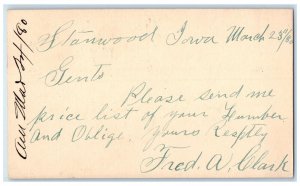 Stanwood Iowa March 23/80
Gents
Please send me
price list of your Humber
and Oblige. yours Resptly
Fred. A. Clark
Ans Mar 24/80